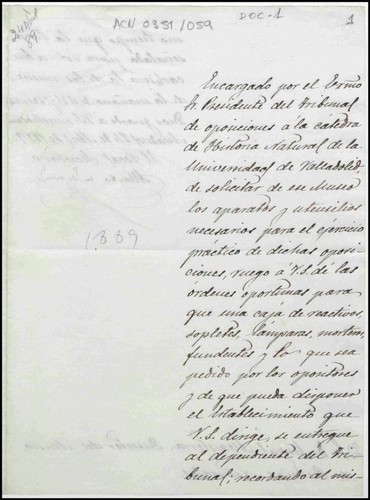 24 abril
89
ACN 0351/059
DOC-1
1
Encargado por el Exmo
Sr. Presidente del Tribunal
de oposiciones á la cátedra
de Historia Natural de la
Universidad de Valladolid,
de solicitar de ese Museo
los aparatos y utensilios
necesarios para el ejercicio
práctico de dichas oposi-
ciones, ruego á V.S. dé las
órdenes oportunas para
que una caja de reactivos,
sopletes, lámparas, morteros,
fundentes y lo que sea
pedido por los opositores
y de que pueda disponer
el Establecimiento que
V.S. dirige, se entregue
al dependiente del Tri-
bunal; recordando al mis-
1889